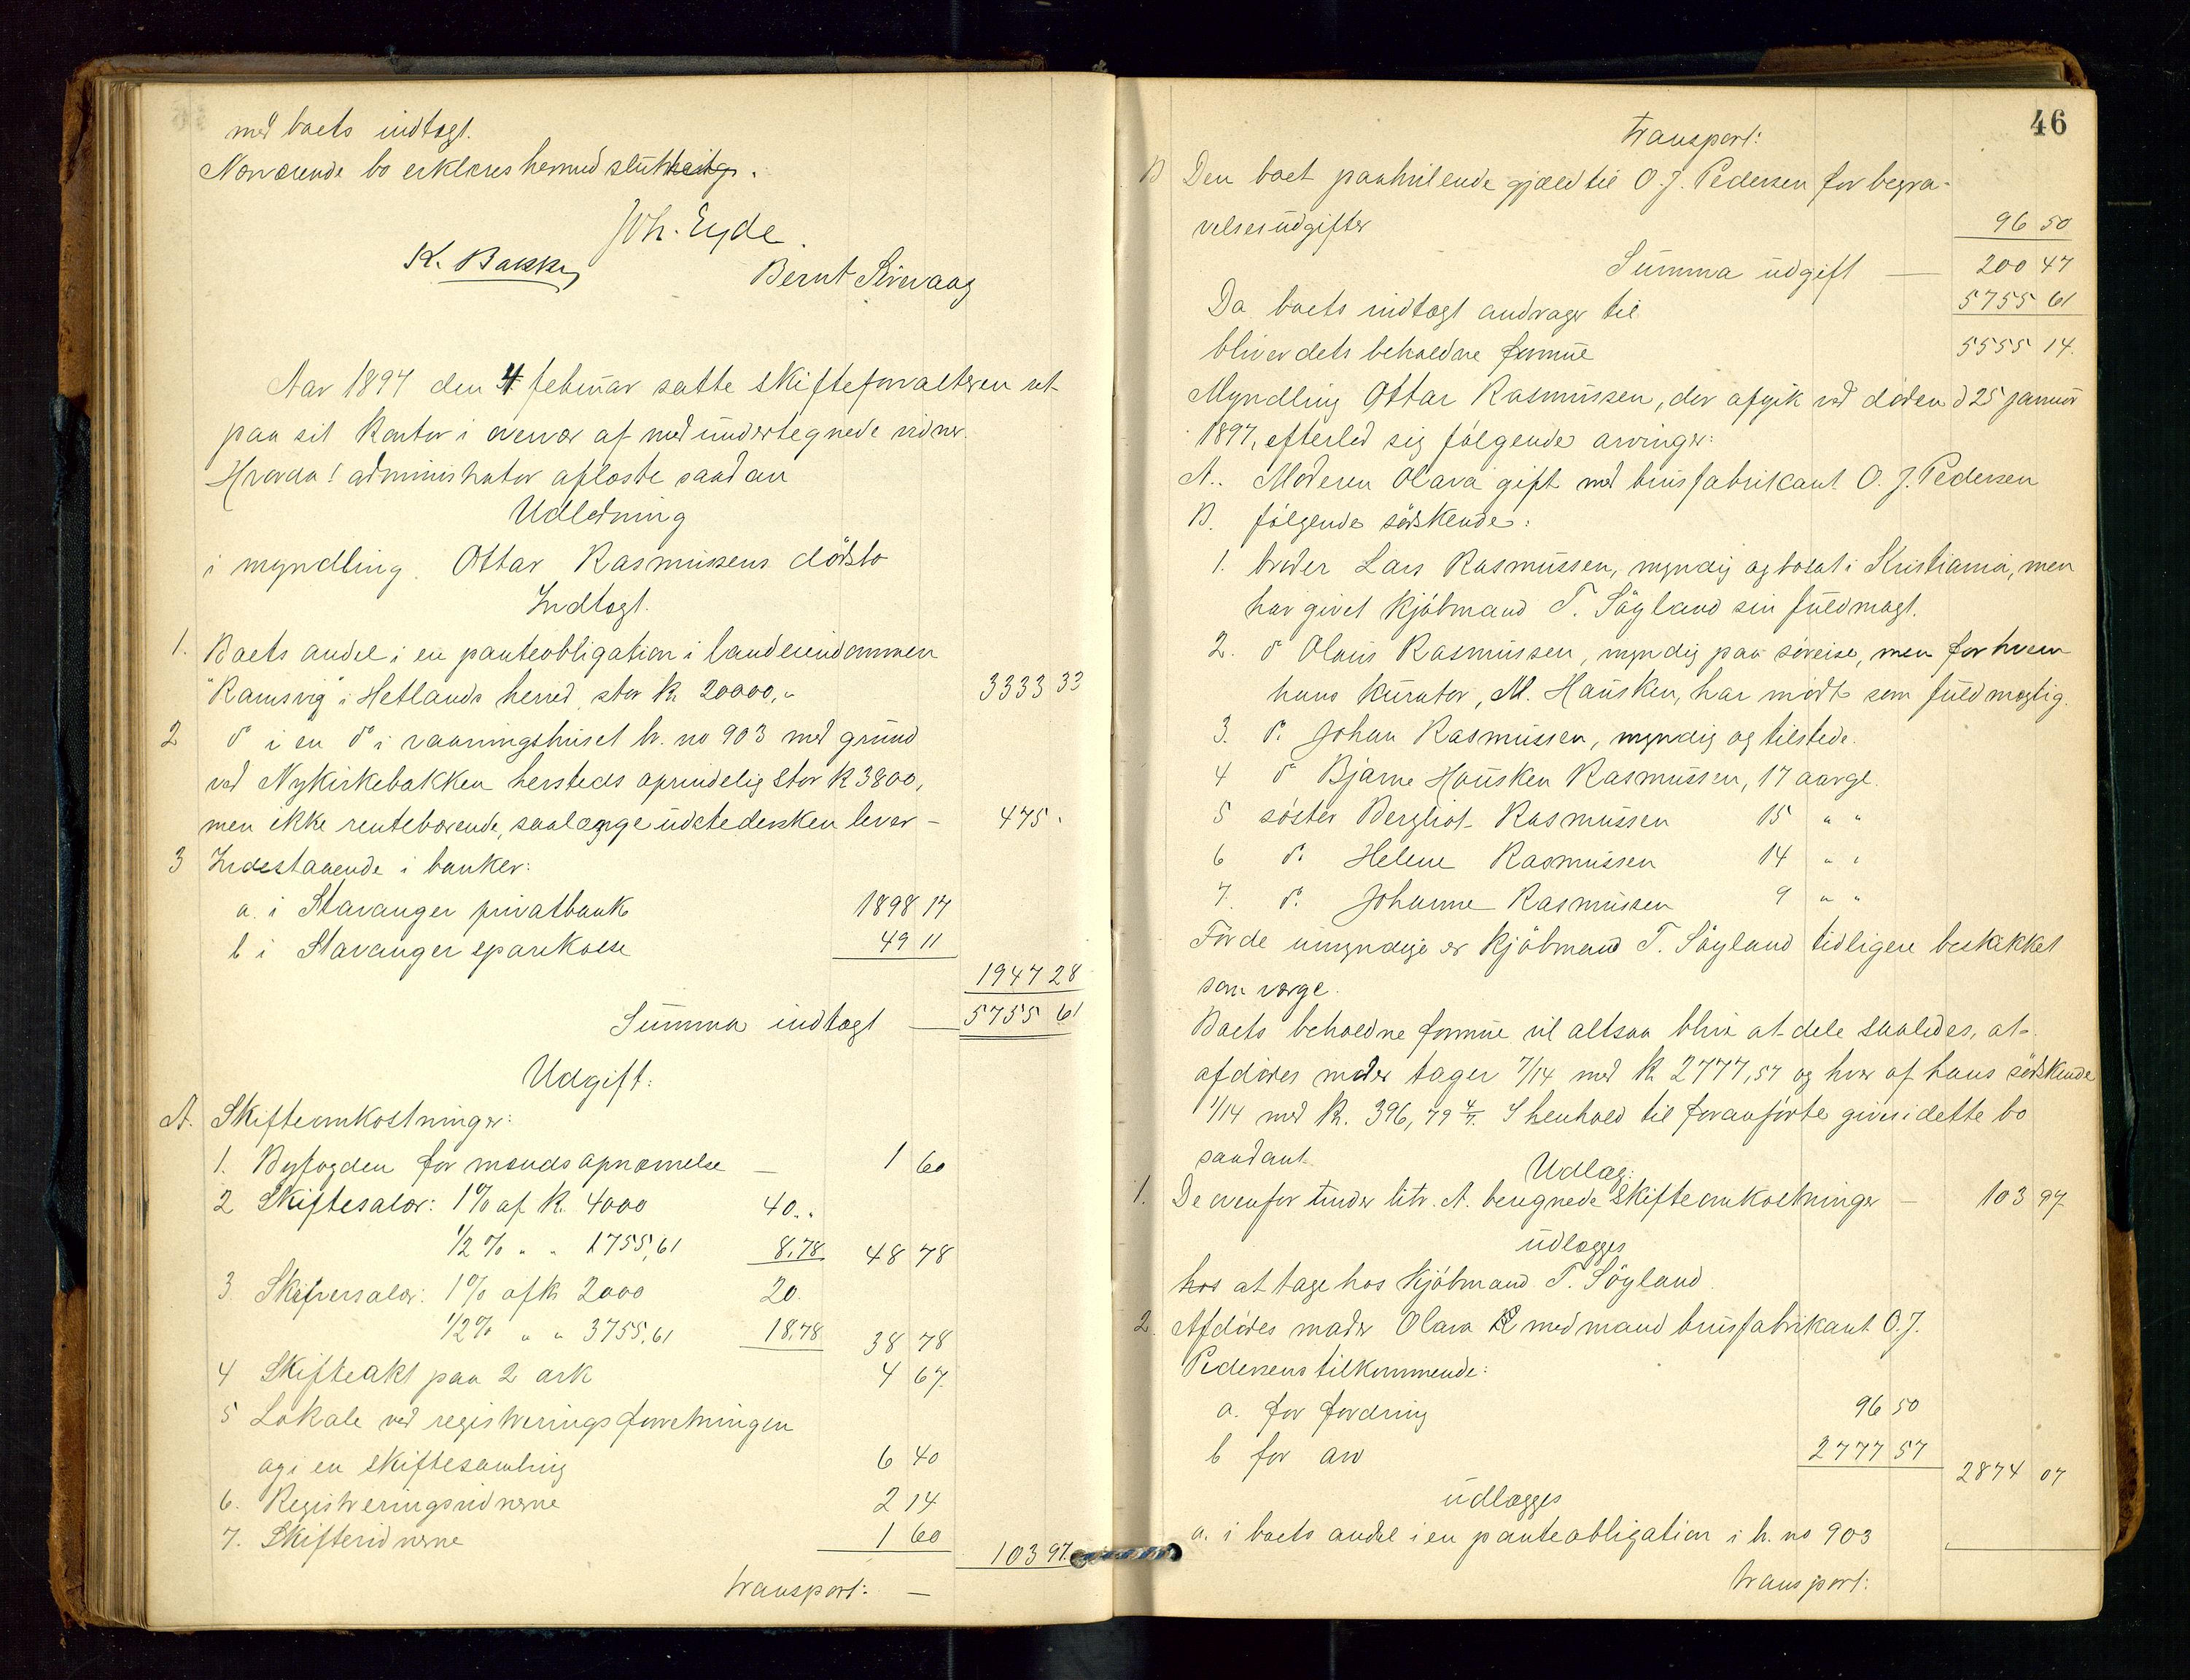 med boets indtægt.
Nærværende bo erklæres hermed sluttet.
Joh. Eyde.
K. Bakke
Bernt Sirevaag
Aar 1897 den 4 februar satte skifteforvalteren ret
paa sit kontor i overvær af medundertegnede vidner.
Hvorda! administrator afløste saadan
Udledning
i myndling Ottar Rasmussens dödsbo
Indtægt.
1. Boets andel i en panteobligation i landeiendommen
"Ramsvig" i Hetlands herred, stor kr. 20000,"
3333 33
2 do i en do i vaaningshuset hr. no 903 med grund
ved Nykirkebakken hersteds oprindelig stor kr 3800,
men ikke rentebærende, saalænge udstedersken lever -
475 "
3 Indestaaende i banker:
a. i Stavanger privatbank
1898 17
b i Stavanger sparekasse
49 11
1947 28
Summa indtægt — 5755 61
Udgift:
A. Skifteomkostninger:
1. Byfogden for mænds opnævnelse — 1 60
2 Skiftesalær: 1% af kr. 4000 40 "
1/2% " " 1755,61 8,78 48 78
3. Skriversalær: 1% af kr 2000 20.
1/2% " " 3755,61 18,78 38 78
4 Skifteakt paa 2 ark 4 67
5 Lokale ved registreringsforretningen
og i en skiftesamling 6 40
6. Registreringsvidnerne 2 14
7. Skiftevidnerne 1 60
103 97
transport: —
46
transport:
B Den boet paahvilende gjæld til O. J. Pedersen for begra-
velsesudgifter
96 50
Summa udgift — 200 47
Da boets indtægt andrager til 5755 61
bliver dets beholdne formue 5555 14.
Myndling Ottar Rasmussen, der afgik ved döden d 25 januar
1897, efterlod sig fölgende arvinger:
A. Moderen Olava gift med brusfabrikant O. J. Pedersen
B. fölgende södskende:
1. broder Lars Rasmussen, myndig og bosat i Kristiania, men
har givet kjöbmand T. Söyland sin fuldmagt.
2. do Olaus Rasmussen, myndig paa söreise, men for hvem
hans kurator, M. Hausken, har mödt som fuldmægtig.
3. do Johan Rasmussen, myndig og tilstede.
4 do Bjarne Hausken Rasmussen, 17 aar gl.
5 söster Bergliot Rasmussen 15 " "
6 do Helene Rasmussen 14 " "
7. do Johanne Rasmussen 9 " "
For de umyndige er kjöbmand T. Söyland tidligere beskikket
som værge.
Boets beholdne formue vil altsaa blive at dele saaledes, at
afdödes moder tager 7/14 med kr 2777,57 og hver af hans södskende
1/14 med kr. 396,79 4/7. I henhold til foranförte gives i dette bo
saadant
Udlæg:
1. De ovenfor under litr. A. beregnede skifteomkostninger — 103 97
udlægges
hos at tage hos kjöbmand T. Söyland.
2. Afdödes moder Olava med mand brusfabrikant O. J.
Pedersens tilkommende:
a. for fordring 96 50
b for arv 2777 57
2874 07
udlægges
a. i boets andel i en panteobligation i h. no 903
transport: